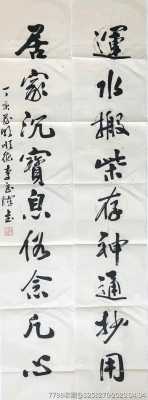 運水搬柴存神通妙用
居家沉寶息俗念凡心
丁亥